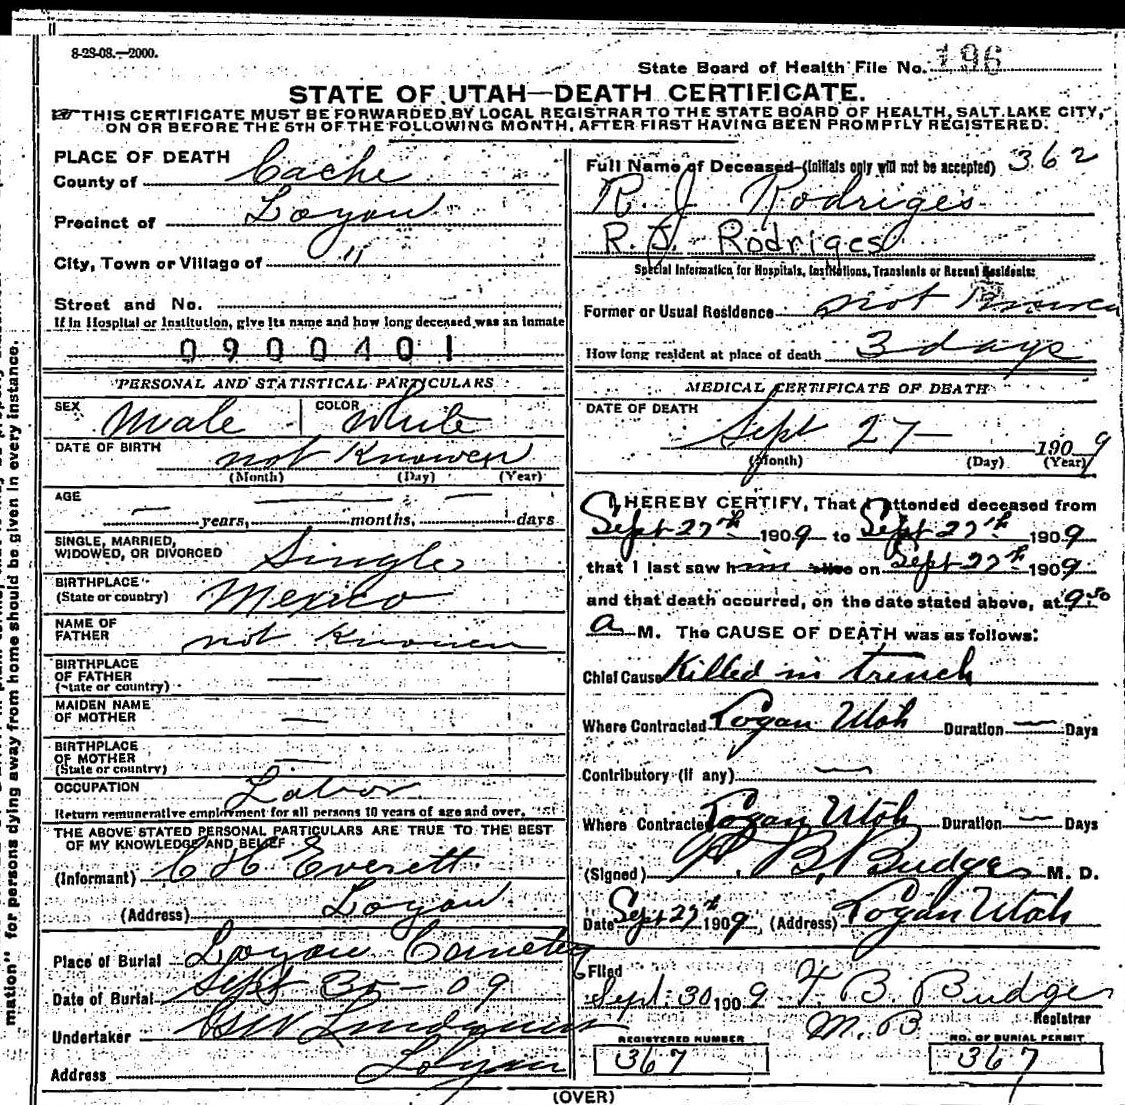 8-28-08.—2000.
State Board of Health File No. 196
STATE OF UTAH—DEATH CERTIFICATE.
THIS CERTIFICATE MUST BE FORWARDED BY LOCAL REGISTRAR TO THE STATE BOARD OF HEALTH, SALT LAKE CITY,
ON OR BEFORE THE 5TH OF THE FOLLOWING MONTH, AFTER FIRST HAVING BEEN PROMPTLY REGISTERED.
PLACE OF DEATH
County of Cache
Precinct of Logan
City, Town or Village of "
Street and No.
If in Hospital or Institution, give its name and how long deceased was an inmate
0900401
PERSONAL AND STATISTICAL PARTICULARS
SEX Male COLOR White
DATE OF BIRTH not Knowen
(Month) (Day) (Year)
AGE
— years, — months, — days
SINGLE, MARRIED,
WIDOWED, OR DIVORCED Single
BIRTHPLACE
(State or country) Mexico
NAME OF
FATHER not Knowen
BIRTHPLACE
OF FATHER —
(State or country)
MAIDEN NAME
OF MOTHER —
BIRTHPLACE
OF MOTHER —
(State or country)
OCCUPATION Labor
Return remunerative employment for all persons 10 years of age and over.
THE ABOVE STATED PERSONAL PARTICULARS ARE TRUE TO THE BEST
OF MY KNOWLEDGE AND BELIEF
(Informant) C H Everett
(Address) Logan
Place of Burial Logan Cemetery
Date of Burial Sept 30 - 09
Undertaker Lindquist
Address Logan
Full Name of Deceased (initials only will not be accepted) 362
R. J Rodriges
R. J. Rodriges
Special Information for Hospitals, Institutions, Transients or Recent Residents:
Former or Usual Residence not Knowen
How long resident at place of death 3 days
MEDICAL CERTIFICATE OF DEATH
DATE OF DEATH
Sept 27 — 1909
(Month) (Day) (Year)
I HEREBY CERTIFY, That I attended deceased from
Sept 27th 1909 to Sept 27th 1909
that I last saw him alive on Sept 27th 1909
and that death occurred, on the date stated above, at 9.30
a M. The CAUSE OF DEATH was as follows:
Chief Cause Killed in trench
Where Contracted Logan Utah Duration — Days
Contributory (if any) —
Where Contracted Logan Utah Duration — Days
(Signed) T. B. Budge M. D.
Date Sept 27th 1909, (Address) Logan Utah
Filed
Sept. 30 1909 T. B. Budge
M. D. Registrar
REGISTERED NUMBER
367
NO. OF BURIAL PERMIT
367
(OVER)
mation" for persons dying away from home should be given in every instance.